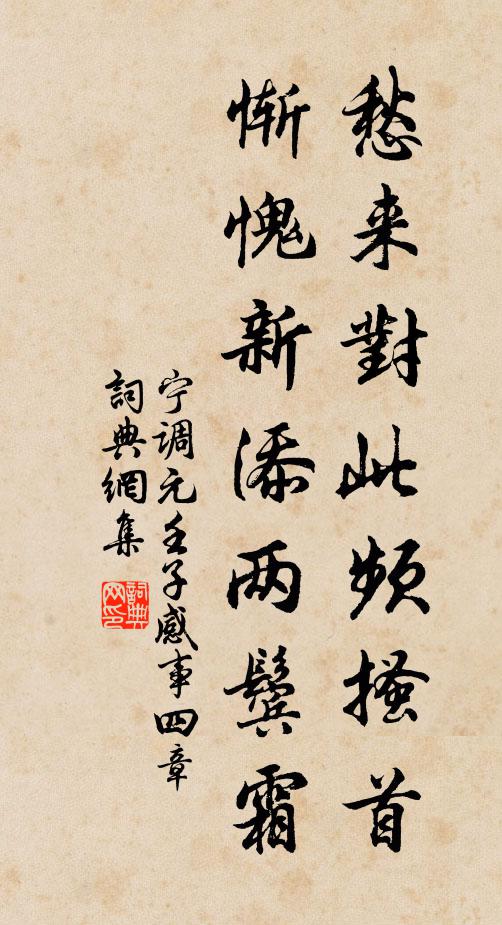 愁来對此頻搔首
惭愧新添两鬓霜
宁调元壬子感事四章
詞典網集
詞典网印